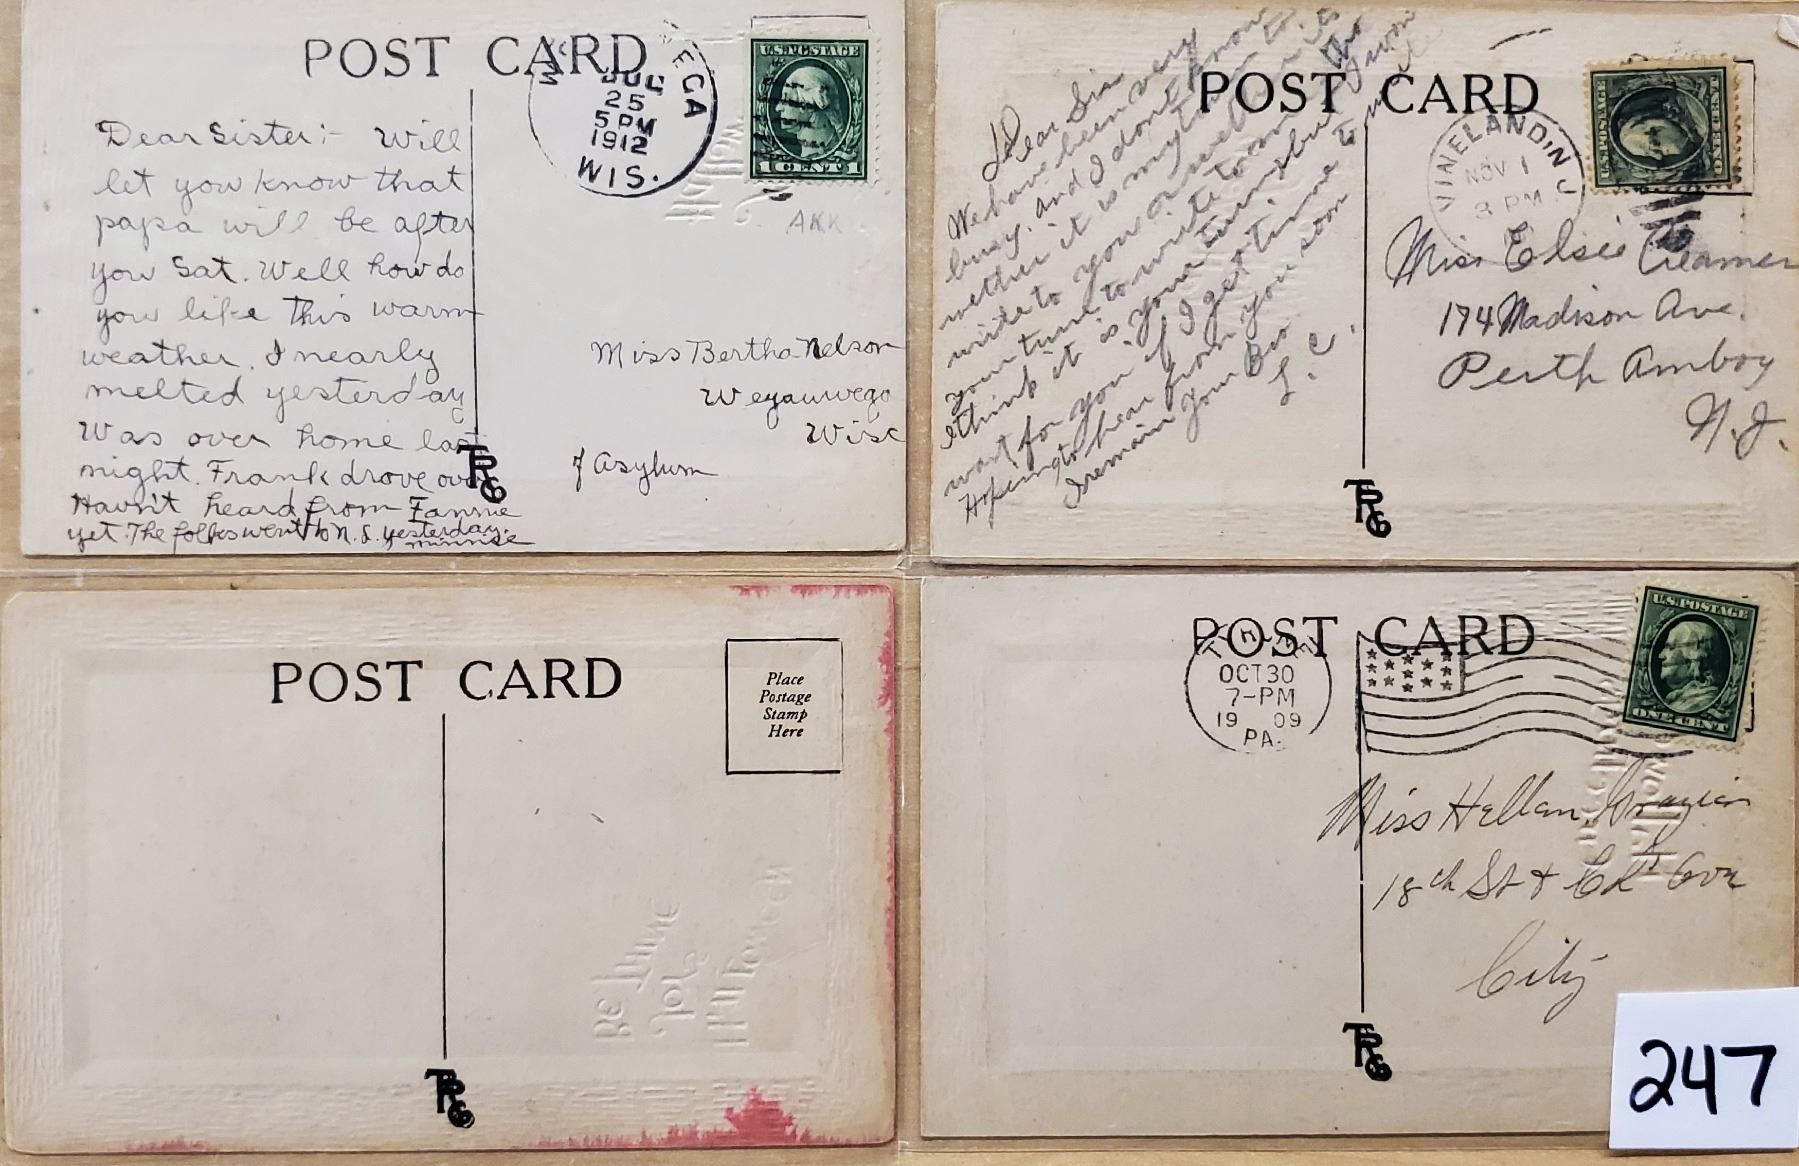 POST CARD
JUL
25
5 PM
1912
WIS.
EGA
U.S. POSTAGE
1 CENT 1
AKK
Dear Sister:- Will
let you know that
papa will be after
you Sat. Well how do
you like this warm
weather. I nearly
melted yesterday
Was over home last
night. Frank drove over
Havn't heard from Fannie
yet. The folks went to N. L. yesterday.
Minnie
Miss Bertha Nelson
Weyauwega
Wisc
% Asylum
TRG
POST CARD
VINELAND, N.J.
NOV 1
8 PM
U.S. POSTAGE
Dear Sis
We have been very
busy. and I don't know
wether it is my turn to
write to you or wether it is
your turn to write to me tho
I think it is your turn but I won
wait for you if I get time to write
Hopeing to hear from you soon
I remain your Bro
L. C.
Miss Elsie Creamer
174 Madison Ave.
Perth Amboy
N. J.
TRG
POST CARD
Place
Postage
Stamp
Here
Be Thine
Joy
TRG
POST CARD
OCT 30
7-PM
1909
PA.
U.S. POSTAGE
ONE CENT
Miss Hellan
18th St &
City
TRG
247